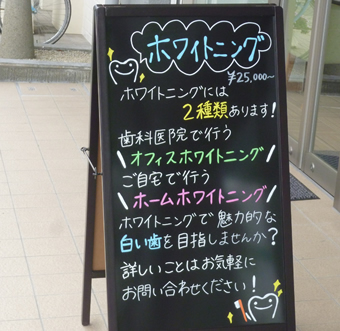 ホワイトニング
¥25,000〜
ホワイトニングには
2種類あります!
歯科医院で行う
\オフィスホワイトニング/
ご自宅で行う
\ホームホワイトニング/
ホワイトニングで魅力的な
白い歯を目指しませんか?
詳しいことはお気軽に
お問い合わせください!